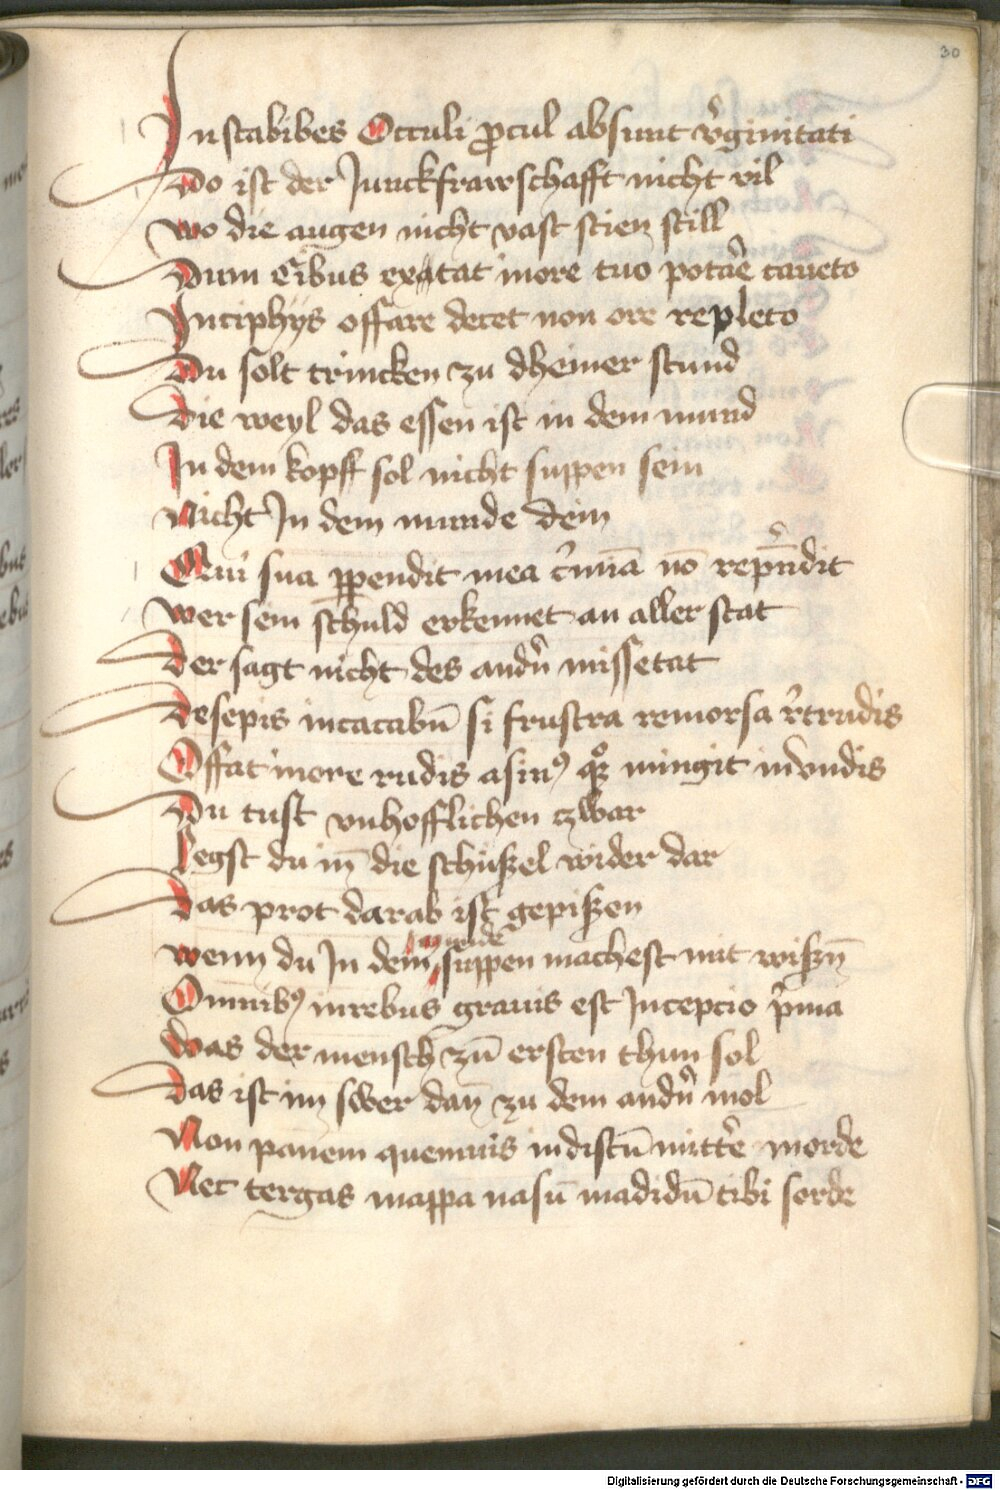 30
Instabibes Occuli ꝓcul absunt v̓ginitati
Do ist der Junckfrawschafft nicht vil
wo die augen nicht vast stien still
Dum Cibus extat in ore tuo potar̄e caueto
In ciphys offare decet non ore repleto
Du solt trincken zu dheiner stund
Die weyl das essen ist in dem mund
In dem kopff sol nicht suppen sein
Nicht In dem munde dein
Qui sua ꝑpendit mea c̓mīa nō rep̄ndit
wer sein schuld erkennet an aller stat
Der sagt nicht des andn̄ missetat
Desepis in cacabū si frustra remorsa r̓trudis
Offat in ore rudis asinꝰ qꝫ mingit in vndis
Du tust vnhofflichen czwar
Legst du in̄ die schüßel wider dar
Das prot darab ist gepißen
wenn du In dem munde suppen machest mit wißn̄
Omnibꝰ in rebus grauis est Incepcio p̓ma
Was der mensch zū ersten thun sol
Das ist im swer dan̄ zu dem andn̄ mol
Non panem quemuis in discū mitte̓ morde
Nec tergas mappa nasū madidū tibi sorde
Digitalisierung gefördert durch die Deutsche Forschungsgemeinschaft - DFG